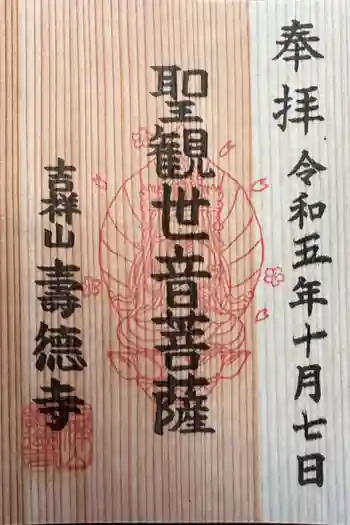 奉拝
令和五年十月七日
聖観世音菩薩
吉祥山
壽徳寺